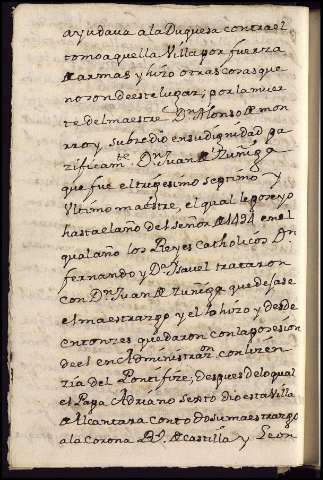 ayudava a la Duquesa contra el
tomo aquella Villa por fuerza
de armas y hizo otras cosas que
no son de este lugar; por la muer
te del maestre Dn. Alonso de mon
rroy subcedio en su dignidad pa
zificamte. Dn. Juan de Zuñiga
que fue el trigesimo septimo y
Vltimo maestre, el qual le poseyo
hasta el año del Señor de 1494 en el
qual año los Reyes Catholicos Dn.
fernando y Da. Ysavel trataron
con Dn. Juan de Zuñiga que dejase
el maestrazgo y el lo hizo y desde
entonzes quedaron con la posesion
de el en Administrazon. con lizen
zia del Pontifize; despues de lo qual
el Papa Adriano sexto dio esta Villa
de Alcantara con todo su maestrazgo
a la Corona Rl. de Castilla y Leon